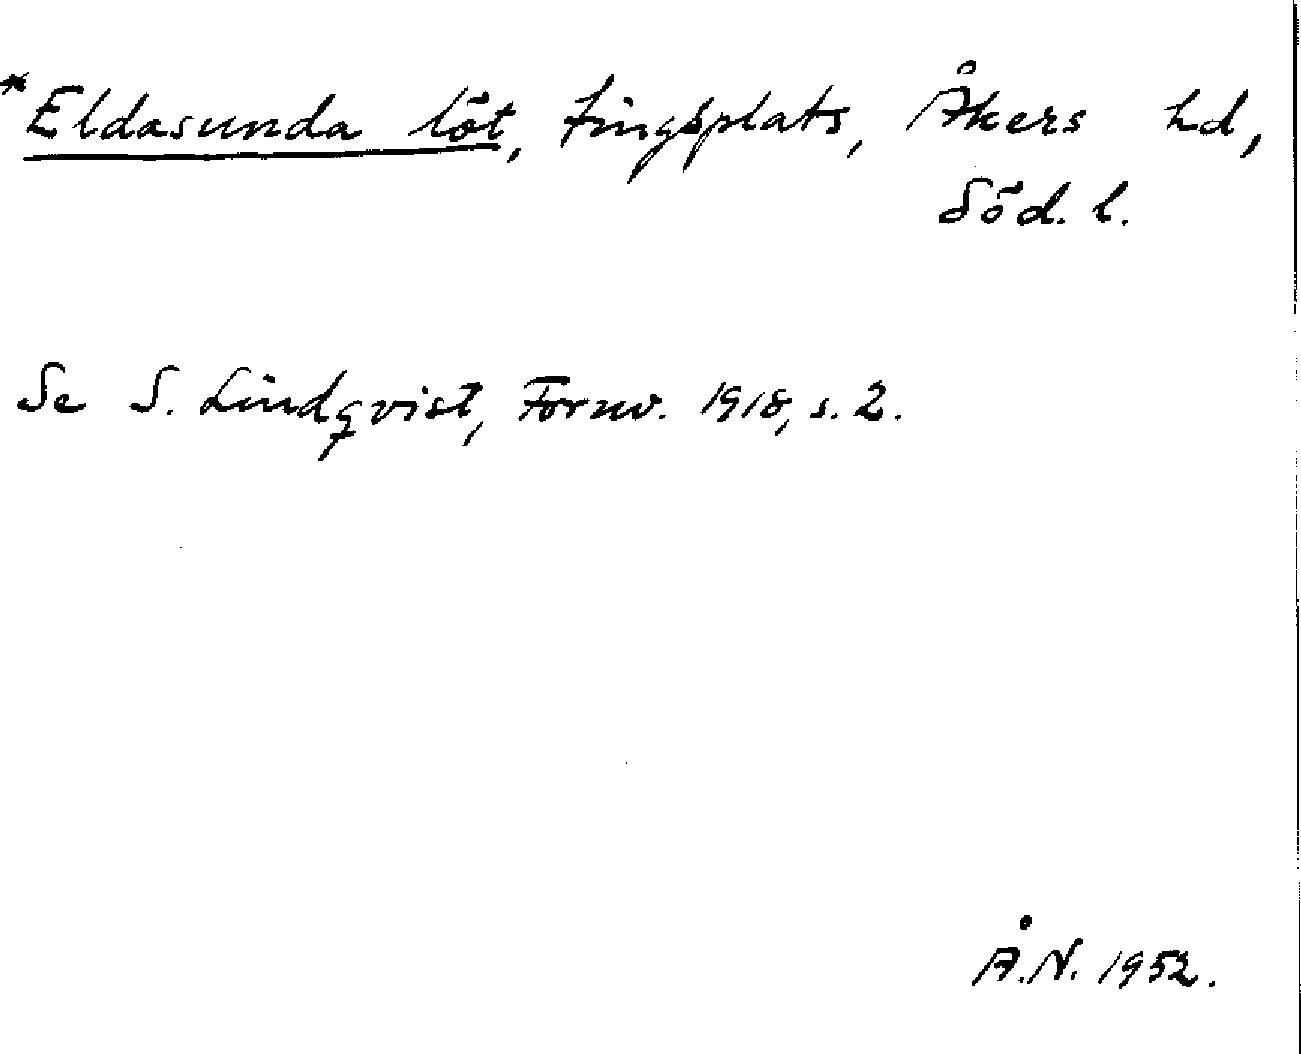 *Eldasunda löt, tingsplats, Åkers hd,
Söd. l.
Se S. Lindqvist, Fornv. 1918, s. 2.
Å.N. 1952.